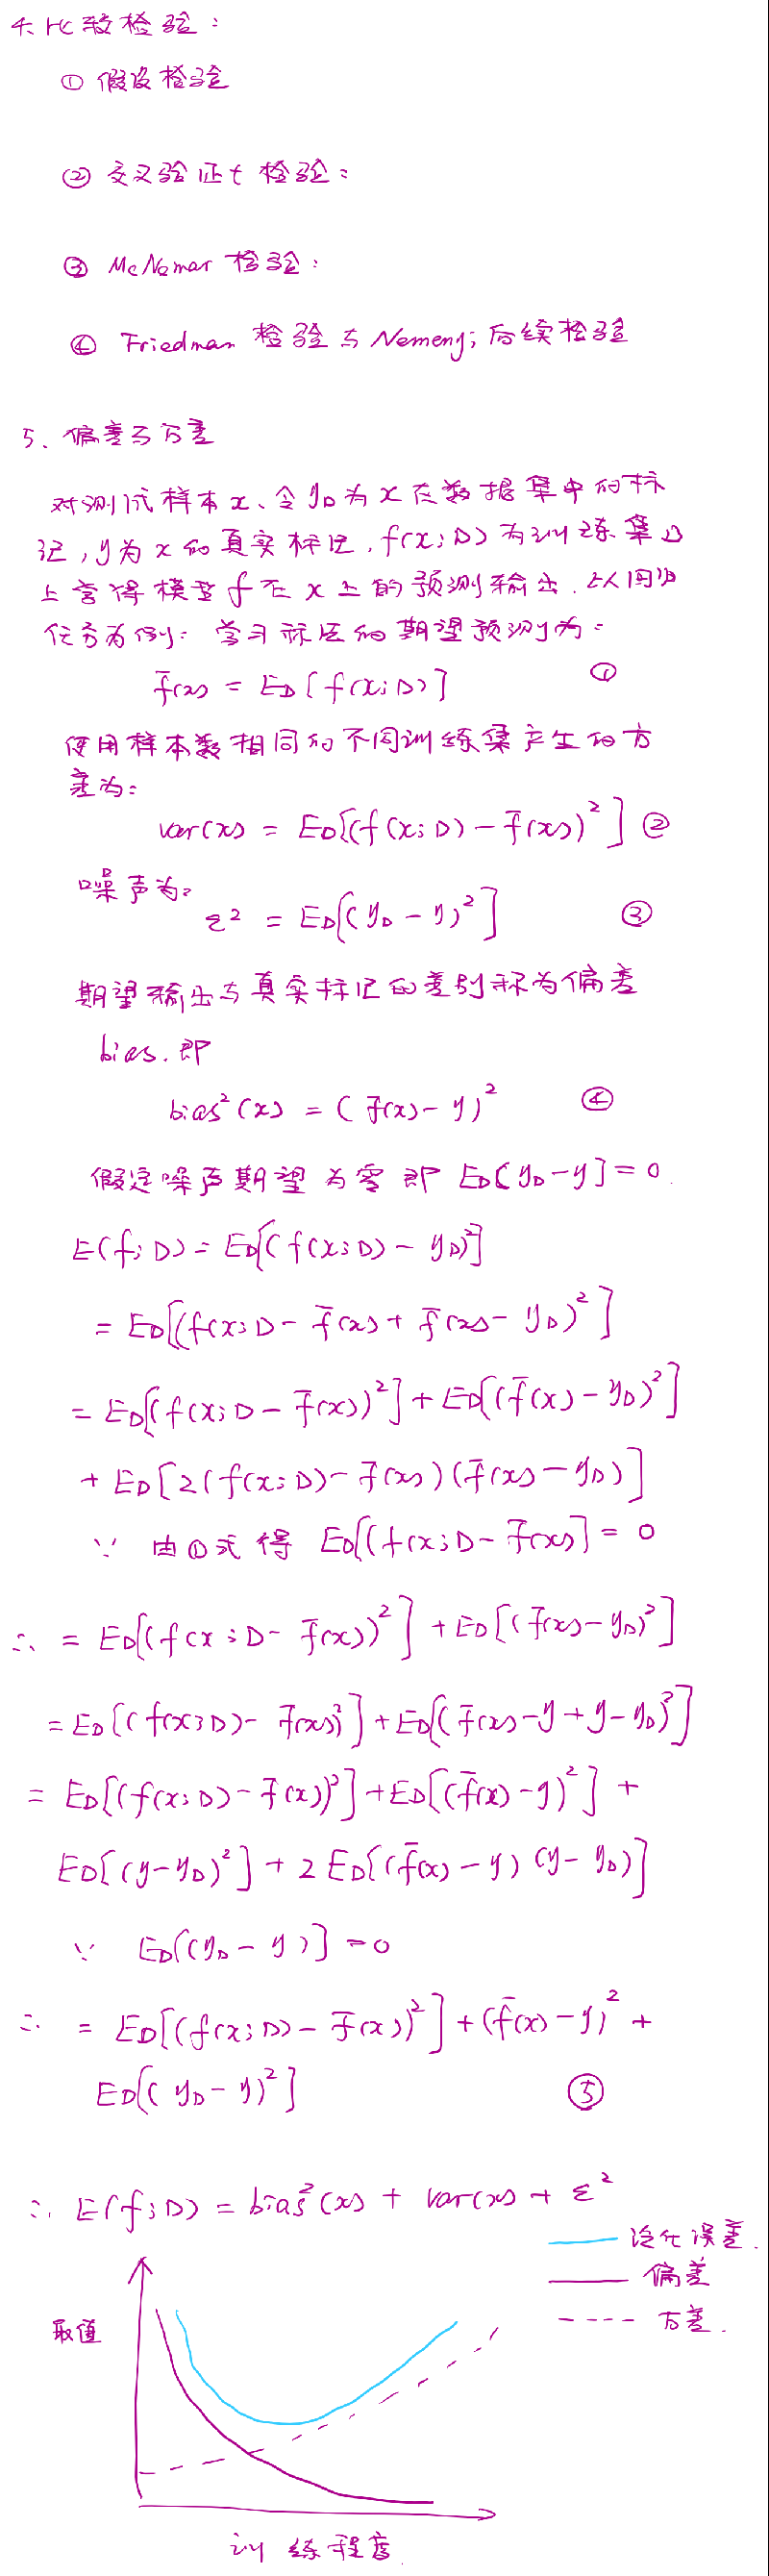 4. 比较检验:
① 假设检验
② 交叉验证t检验:
③ McNemar检验:
④ Friedman 检验与Nemenyi后续检验
5. 偏差与方差
对测试样本x、令y_D为x在数据集中的标
记,y为x的真实标记,f(x;D)为训练集D
上学得模型f在x上的预测输出.以回归
任务为例: 学习算法的期望预测为:
f̄(x) = E_D[f(x;D)] ①
使用样本数相同的不同训练集产生的方
差为:
var(x) = E_D[(f(x;D) - f̄(x))²] ②
噪声为:
ε² = E_D[(y_D - y)²] ③
期望输出与真实标记的差别称为偏差
bias.即
bias²(x) = (f̄(x) - y)² ④
假定噪声期望为零即 E_D[y_D - y] = 0.
E(f;D) = E_D[(f(x;D) - y_D)²]
= E_D[(f(x;D - f̄(x) + f̄(x) - y_D)²]
= E_D[(f(x;D - f̄(x))²] + E_D[(f̄(x) - y_D)²]
+ E_D[2(f(x;D) - f̄(x))(f̄(x) - y_D)]
∵ 由①式得 E_D[(f(x;D - f̄(x)] = 0
∴ = E_D[(f(x;D - f̄(x))²] + E_D[(f̄(x) - y_D)²]
= E_D[(f(x;D) - f̄(x))²] + E_D[(f̄(x) - y + y - y_D)²]
= E_D[(f(x;D) - f̄(x))²] + E_D[(f̄(x) - y)²] +
E_D[(y - y_D)²] + 2E_D[(f̄(x) - y)(y - y_D)]
∵ E_D[(y_D - y)] = 0
∴ = E_D[(f(x;D) - f̄(x))²] + (f̄(x) - y)² +
E_D[(y_D - y)²] ⑤
∴ E(f;D) = bias²(x) + var(x) + ε²
泛化误差.
偏差
方差.
取值
训练程度.